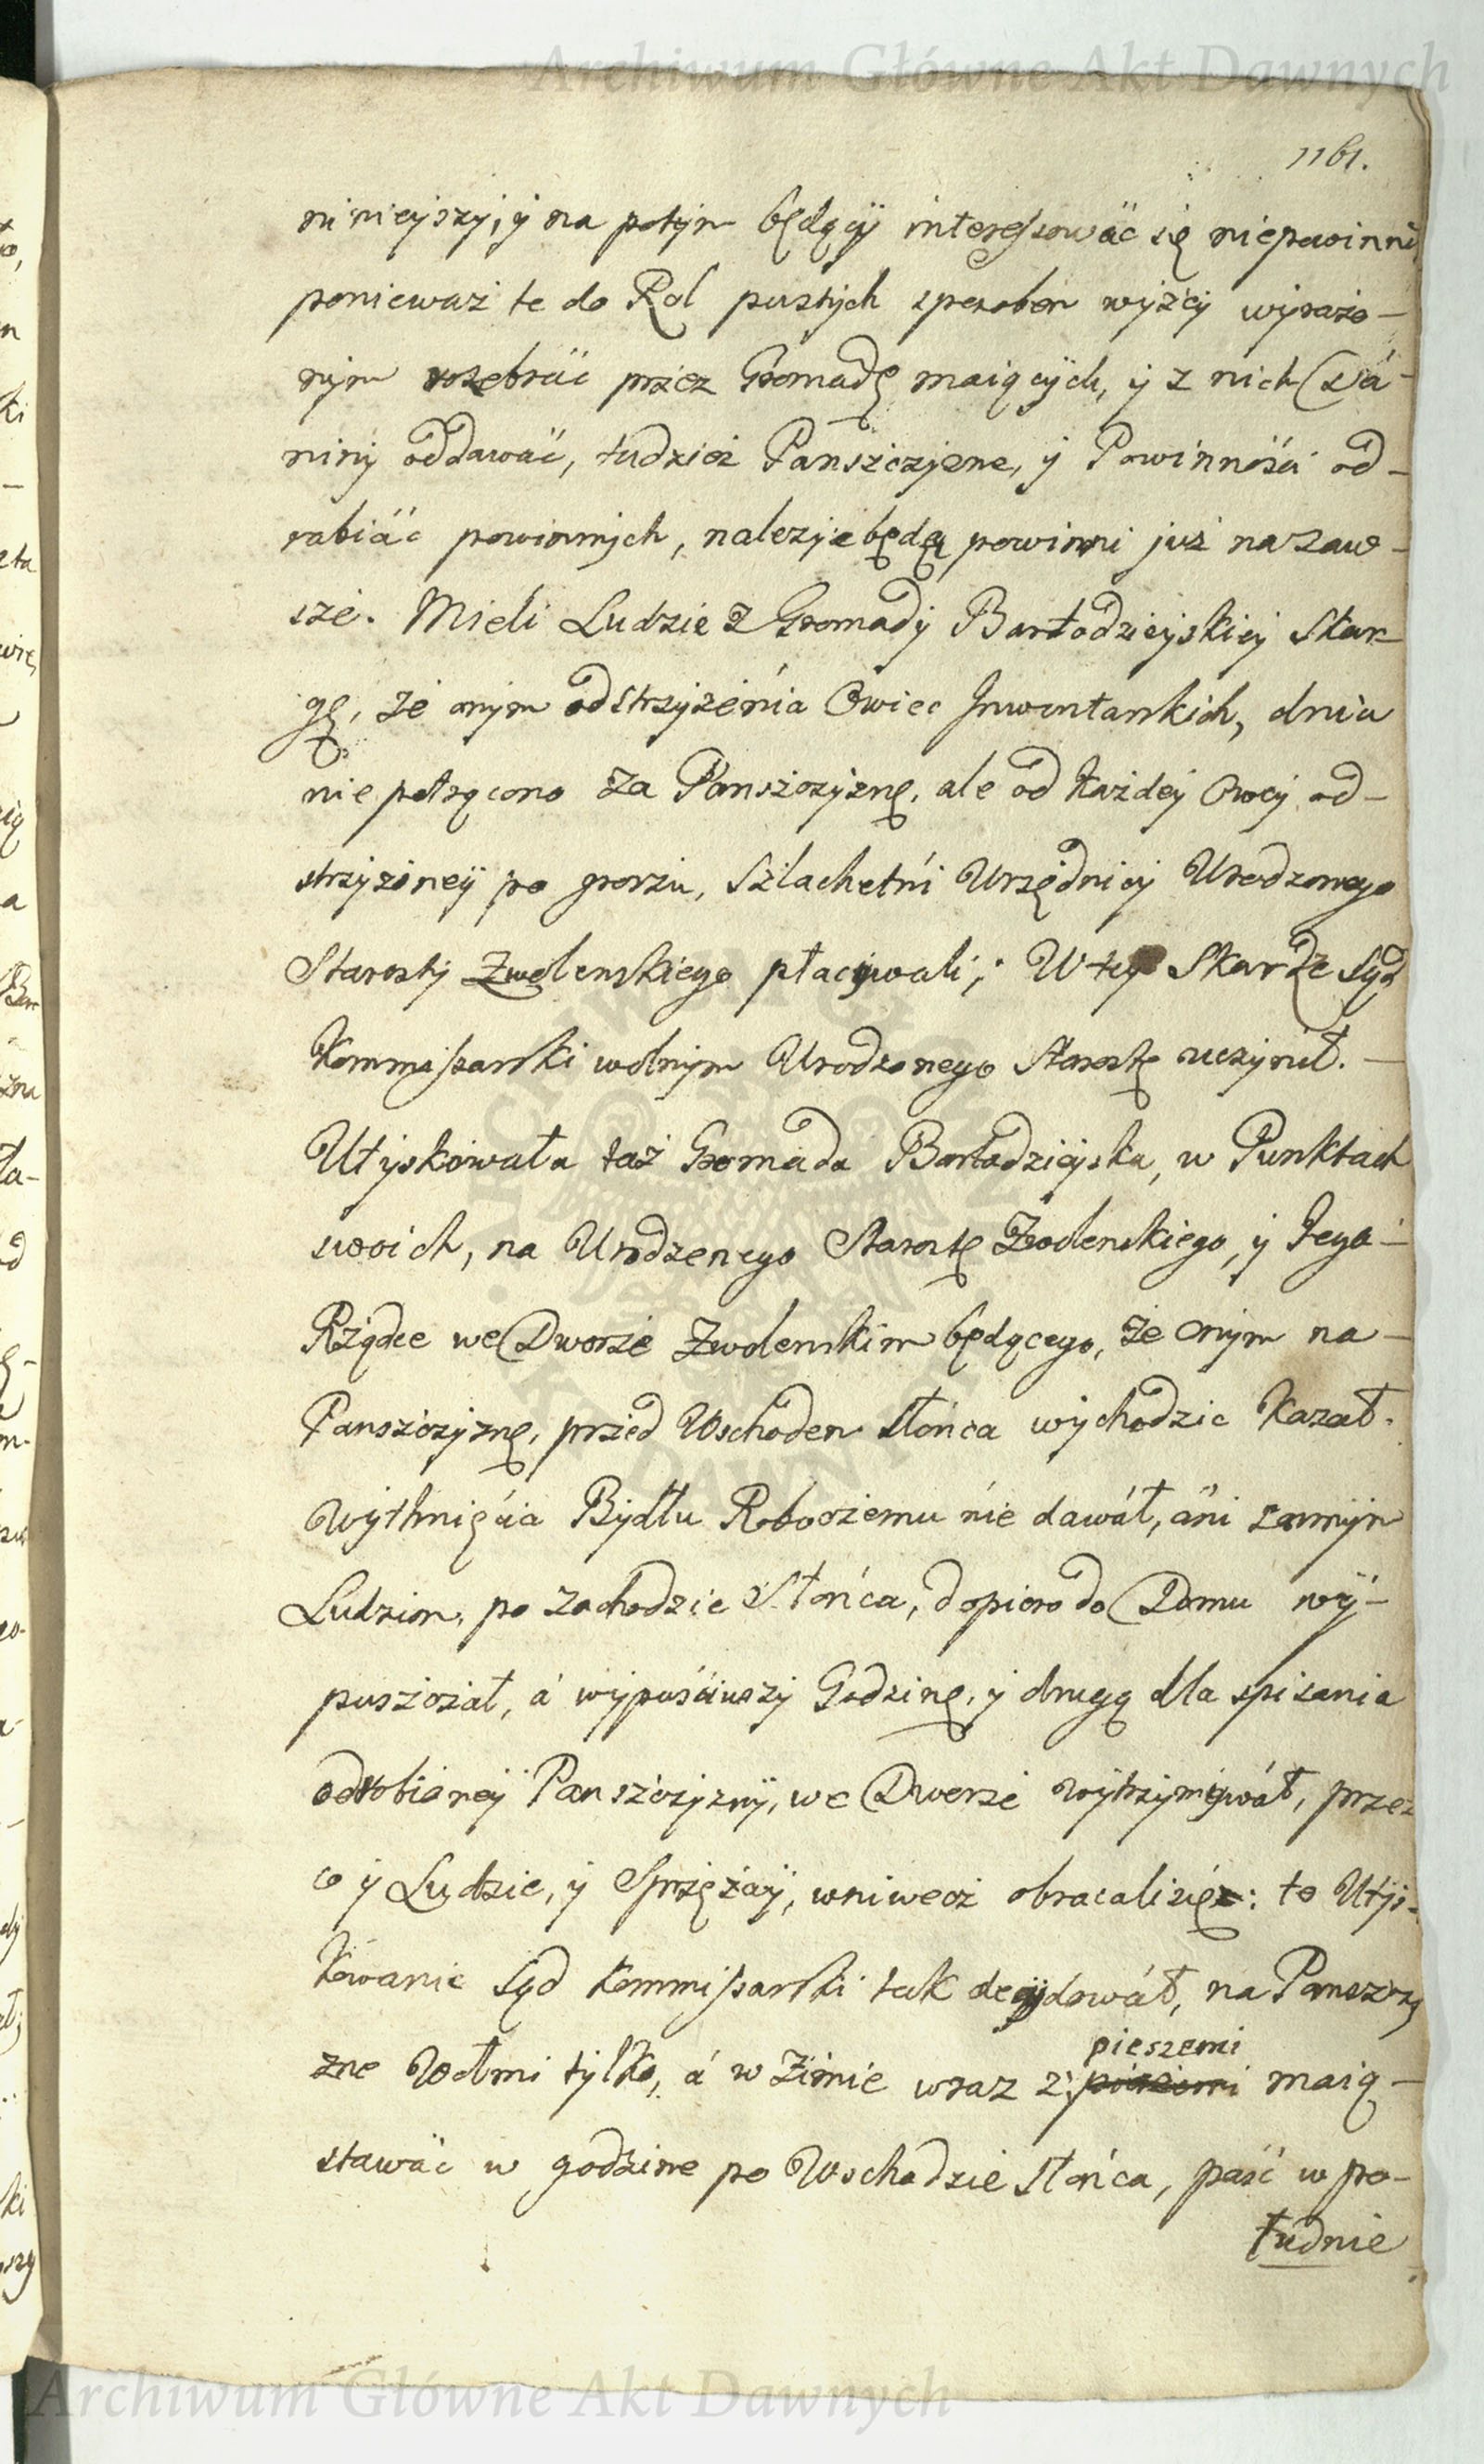 Archiwum Główne Akt Dawnych
1161.
ninieyszy, y na potym będący interessować się niepowinni
ponieważ te do Rol pustych sposobem wyżey wyrażo-
nym rozebrać przez Gromadę maiących, y z nich Da-
niny oddawać, tudzież Panszczyzne, y Powinnośći od-
rabiać powinnych, należyć będą powinni już na zaw-
sze. Mieli Ludzie z Gromady Bartodzieyskiey Skar-
gę, że onym od Strzyżenia Owiec Inwentarskich, dnia
nie potrącono za Panszczyznę, ale od każdey Owcy od-
strzyżoney po groszu, Szlachetni Urzędnicy Urodzonego
Starosty Zwolenskiego płacywali; W tey Skardze Sąd
Kommissarski wolnym Urodzonego Starostę uczynił. -
Utyskowała taż Gromada Bartodzieyska, w Punktach
swoich, na Urodzonego Starostę Zwolenskiego, y Jego -
Rządce we Dworze Zwolenskim będącego, że onym na -
Panszczyznę, przed Wschodem Słońca wychodzic Kazał.
Wytchnięćia Bydłu Roboczemu nie dawał, ani samym
Ludziom, po zachodzie Słońca, dopiero do Domu wy-
puszczał, á wypuśćiwszy Godzinę, y drugą dla spisania
odrobioney Panszczyzny, we Dworze wytrzymywał, przez
co y Ludzie, y Sprzężay, wniwecz obracali się: to Utys-
kowanie Sąd Kommissarski tak decydował, na Panszczy
zne Wołmi tylko, á w Zimie wraz z pieszemi maią -
stawać w godzine po Wschodzie Słońca, paść w po-
łudnie
ARCHIWUM GŁÓWNE AKT DAWNYCH
Archiwum Główne Akt Dawnych